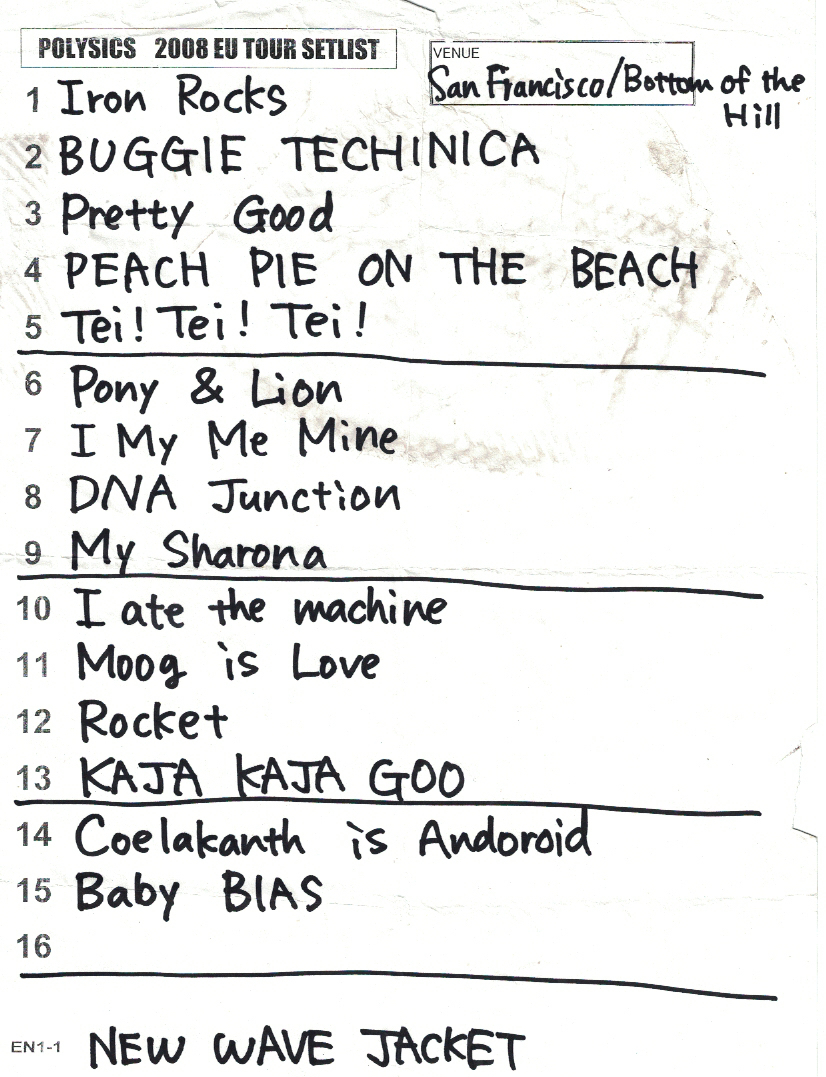 POLYSICS 2008 EU TOUR SETLIST
VENUE
San Francisco/Bottom of the
Hill
1 Iron Rocks
2 BUGGIE TECHINICA
3 Pretty Good
4 PEACH PIE ON THE BEACH
5 Tei! Tei! Tei!
6 Pony & Lion
7 I My Me Mine
8 DNA Junction
9 My Sharona
10 I ate the machine
11 Moog is Love
12 Rocket
13 KAJA KAJA GOO
14 Coelakanth is Andoroid
15 Baby BIAS
16
EN1-1 NEW WAVE JACKET